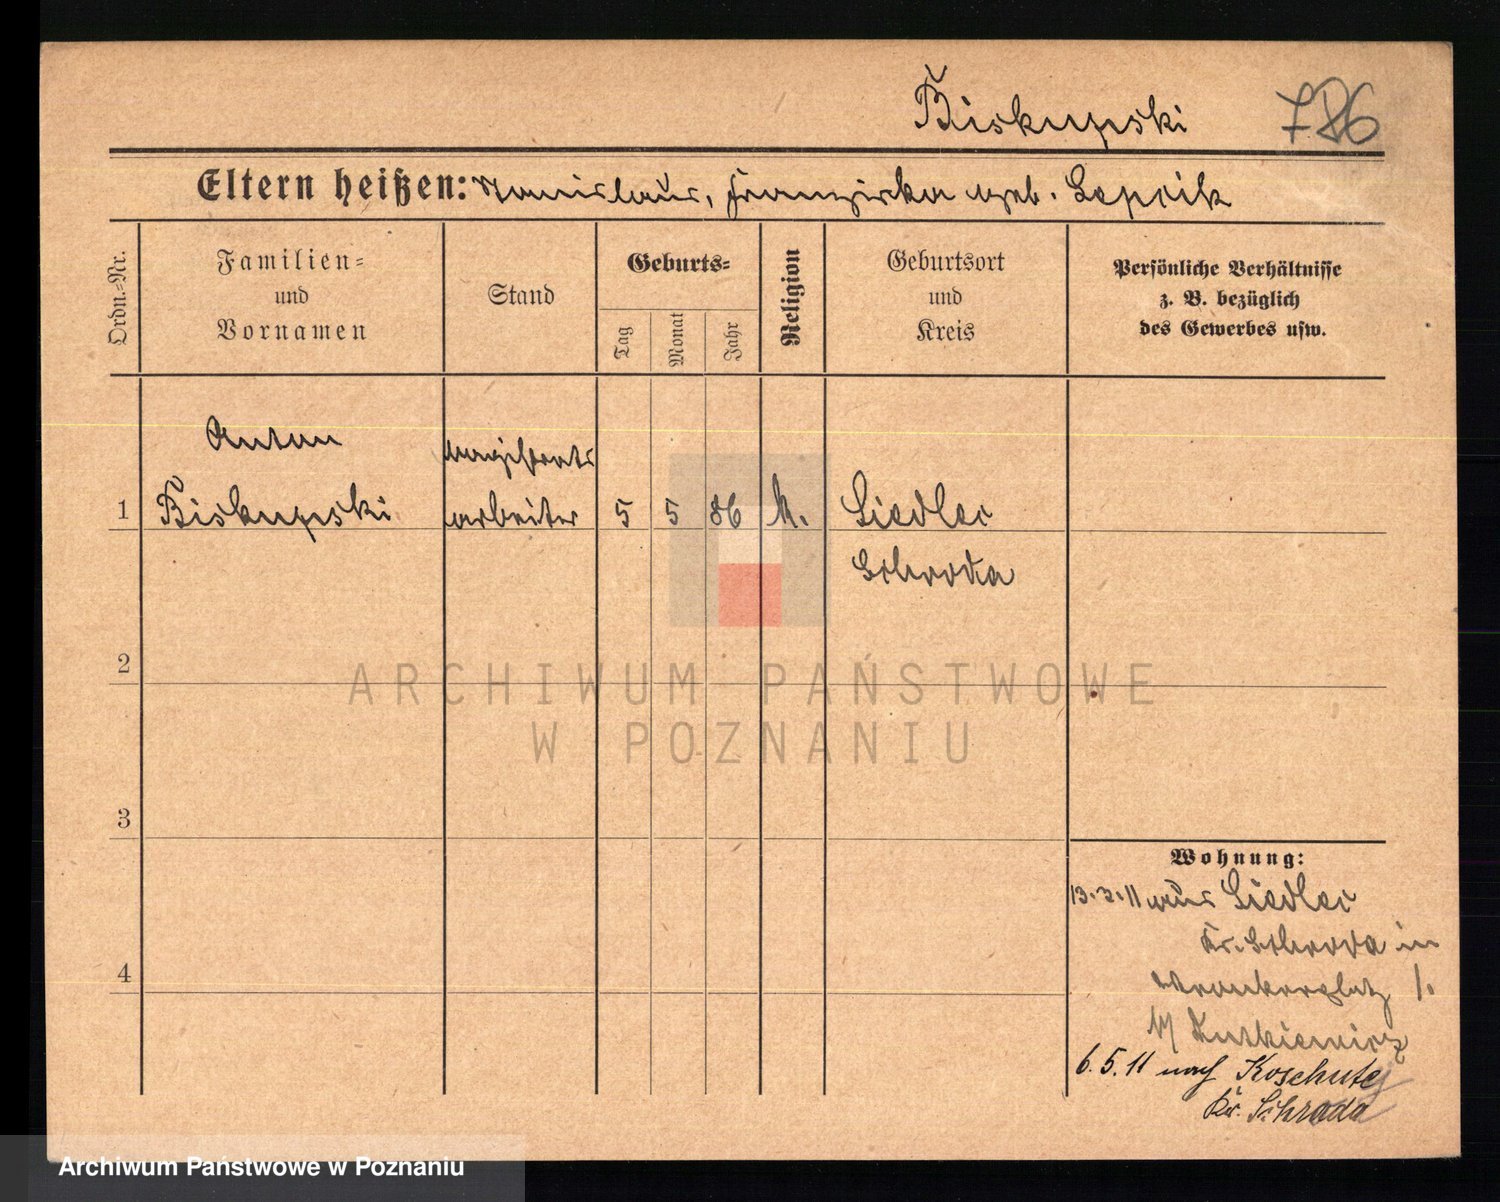 Biskupski 786
Eltern heißen: Stanislaus, Franziska geb. Lepcik
Ordn.-Nr.
Familien-
und
Vornamen
Stand
Geburts-
Tag
Monat
Jahr
Religion
Geburtsort
und
Kreis
Persönliche Verhältnisse
z. B. bezüglich
des Gewerbes usw.
Anton Magistrats
1 Biskupski arbeiter 5 5 86 k. Siedlec
Schroda
2
ARCHIWUM PAŃSTWOWE
W POZNANIU
3
Wohnung:
13.3.11 aus Siedlec
Kr. Schroda in
4
Wronkerplatz 1.
b/ Rutkiewicz
6.5.11 nach Koschuty
Kr. Schroda
Archiwum Państwowe w Poznaniu